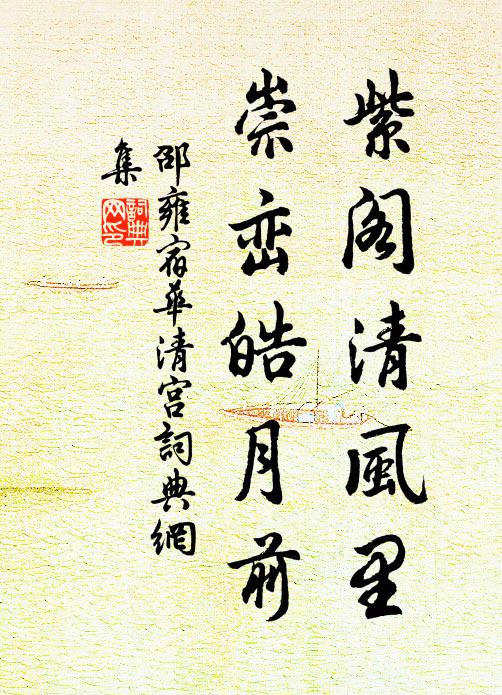 紫阁清風里
崇峦皓月前
邵雍宿華清宮詞典網
集
詞典
网印